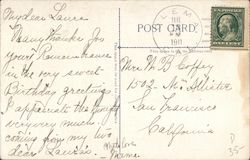 My dear Laura
Many thanks for
your Remembrance
in the very sweet
Birthday greetings
I appreciate the thought
very much
coming from my two
dear Laura's.
POST CARD
JUL
1911
ONE CENT
Mrs W B Coffey
1502 Mc Allister
San Francisco
California